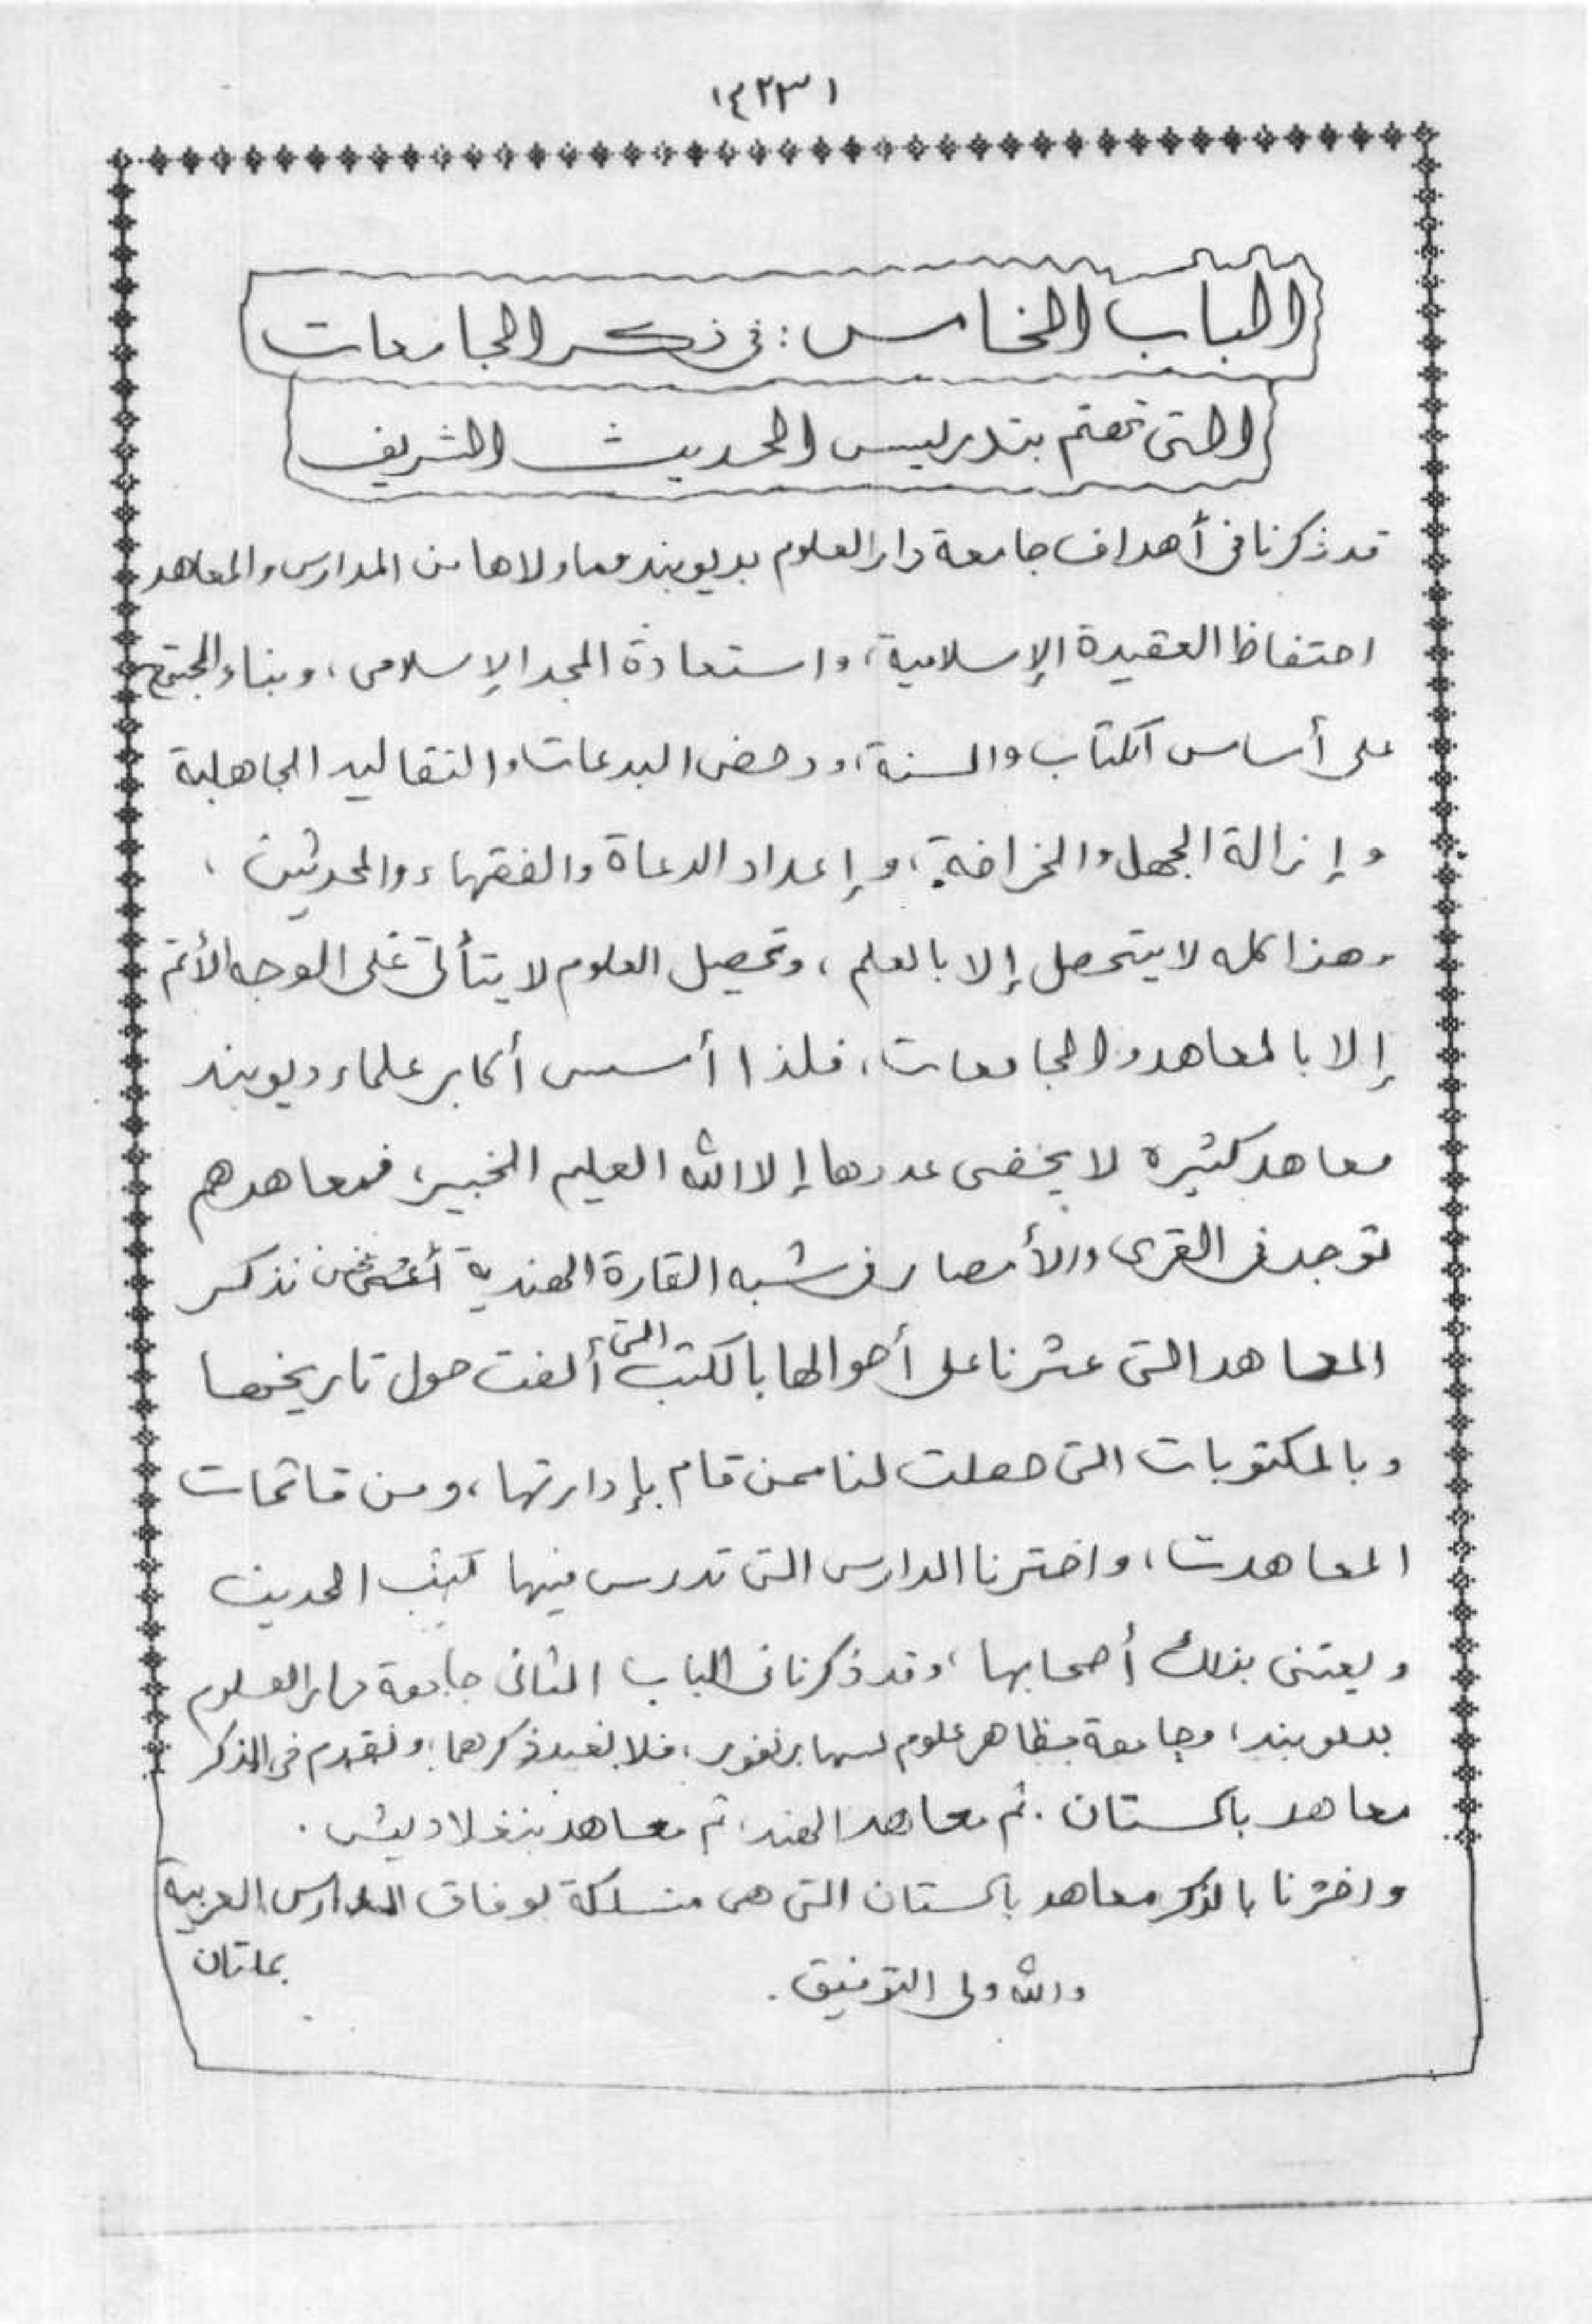 ١٤٢٣١
الباب الخامس: في ذكر الجامعات
التي تهتم بتدريس الحديث الشريف
قد ذكرنا في أهداف جامعة دار العلوم بديوبند وما ولاها من المدارس والمعاهد
احتفاظ العقيدة الإسلامية، واستعادة المجد الإسلامي، وبناء المجتمع
على أساس الكتاب والسنة، ودحض البدعات والتقاليد الجاهلية
وإزالة الجهل والخرافة، وإعداد الدعاة والفقهاء والمحدثين،
وهذا كله لا يتحصل إلا بالعلم، وتحصيل العلوم لا يتأتى على الوجه الأتم
إلا بالمعاهد والجامعات، فلذا أسس أكابر علماء ديوبند
معاهد كثيرة لا يخفى عددها إلا الله العليم الخبير، فمعاهدهم
توجد في القرى والأمصار في شبه القارة الهندية نحن نذكر
المعاهد التي عثرنا على أحوالها بالكتب التي ألفت حول تاريخها
وبالمكتوبات التي حصلت لنا ممن قام بإدارتها، ومن قائمات
المعاهدت، واخترنا المدارس التي تدرس فيها كتب الحديث
ويعتنى بذلك أصحابها، وقد ذكرنا في الباب الثاني جامعة دار العلوم
بديوبند، وجامعة مظاهر علوم بسهارنفور، فلا نعيد ذكرهما، ونقدم في الذكر
معاهد باكستان. ثم معاهد الهند، ثم معاهد بنغلاديش.
واخترنا بالذكر معاهد باكستان التي هي منسلكة بوفاق المدارس العربية
بملتان
والله ولي التوفيق.